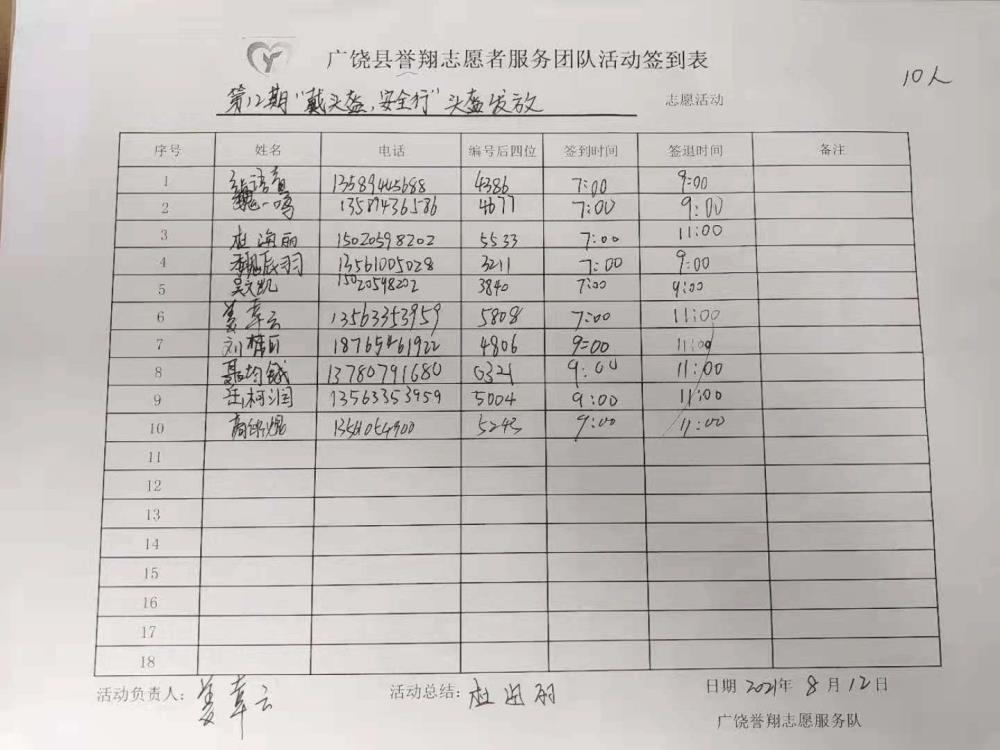 广饶县誉翔志愿者服务团队活动签到表
10人
第12期"戴头盔,安全行"头盔发放 志愿活动
序号 姓名 电话 编号后四位 签到时间 签退时间 备注
1 13589445688 4386 7:00 9:00
2 魏一鸣 13589436586 4677 7:00 9:00
3 杜海丽 15020598202 5533 7:00 11:00
4 13561005028 3211 7:00 9:00
5 吴文凯 15020598202 3840 7:00 9:00
6 姜幸云 13563353959 5808 7:00 11:00
7 刘 4806 9:00 11:00
8 聂均铖 13780791680 0321 9:00 11:00
9 柯润 13563353959 5004 9:00 11:00
10 5243 9:00 11:00
11
12
13
14
15
16
17
18
活动负责人: 姜幸云 活动总结: 杜 日期 2021年 8月12日
广饶誉翔志愿服务队